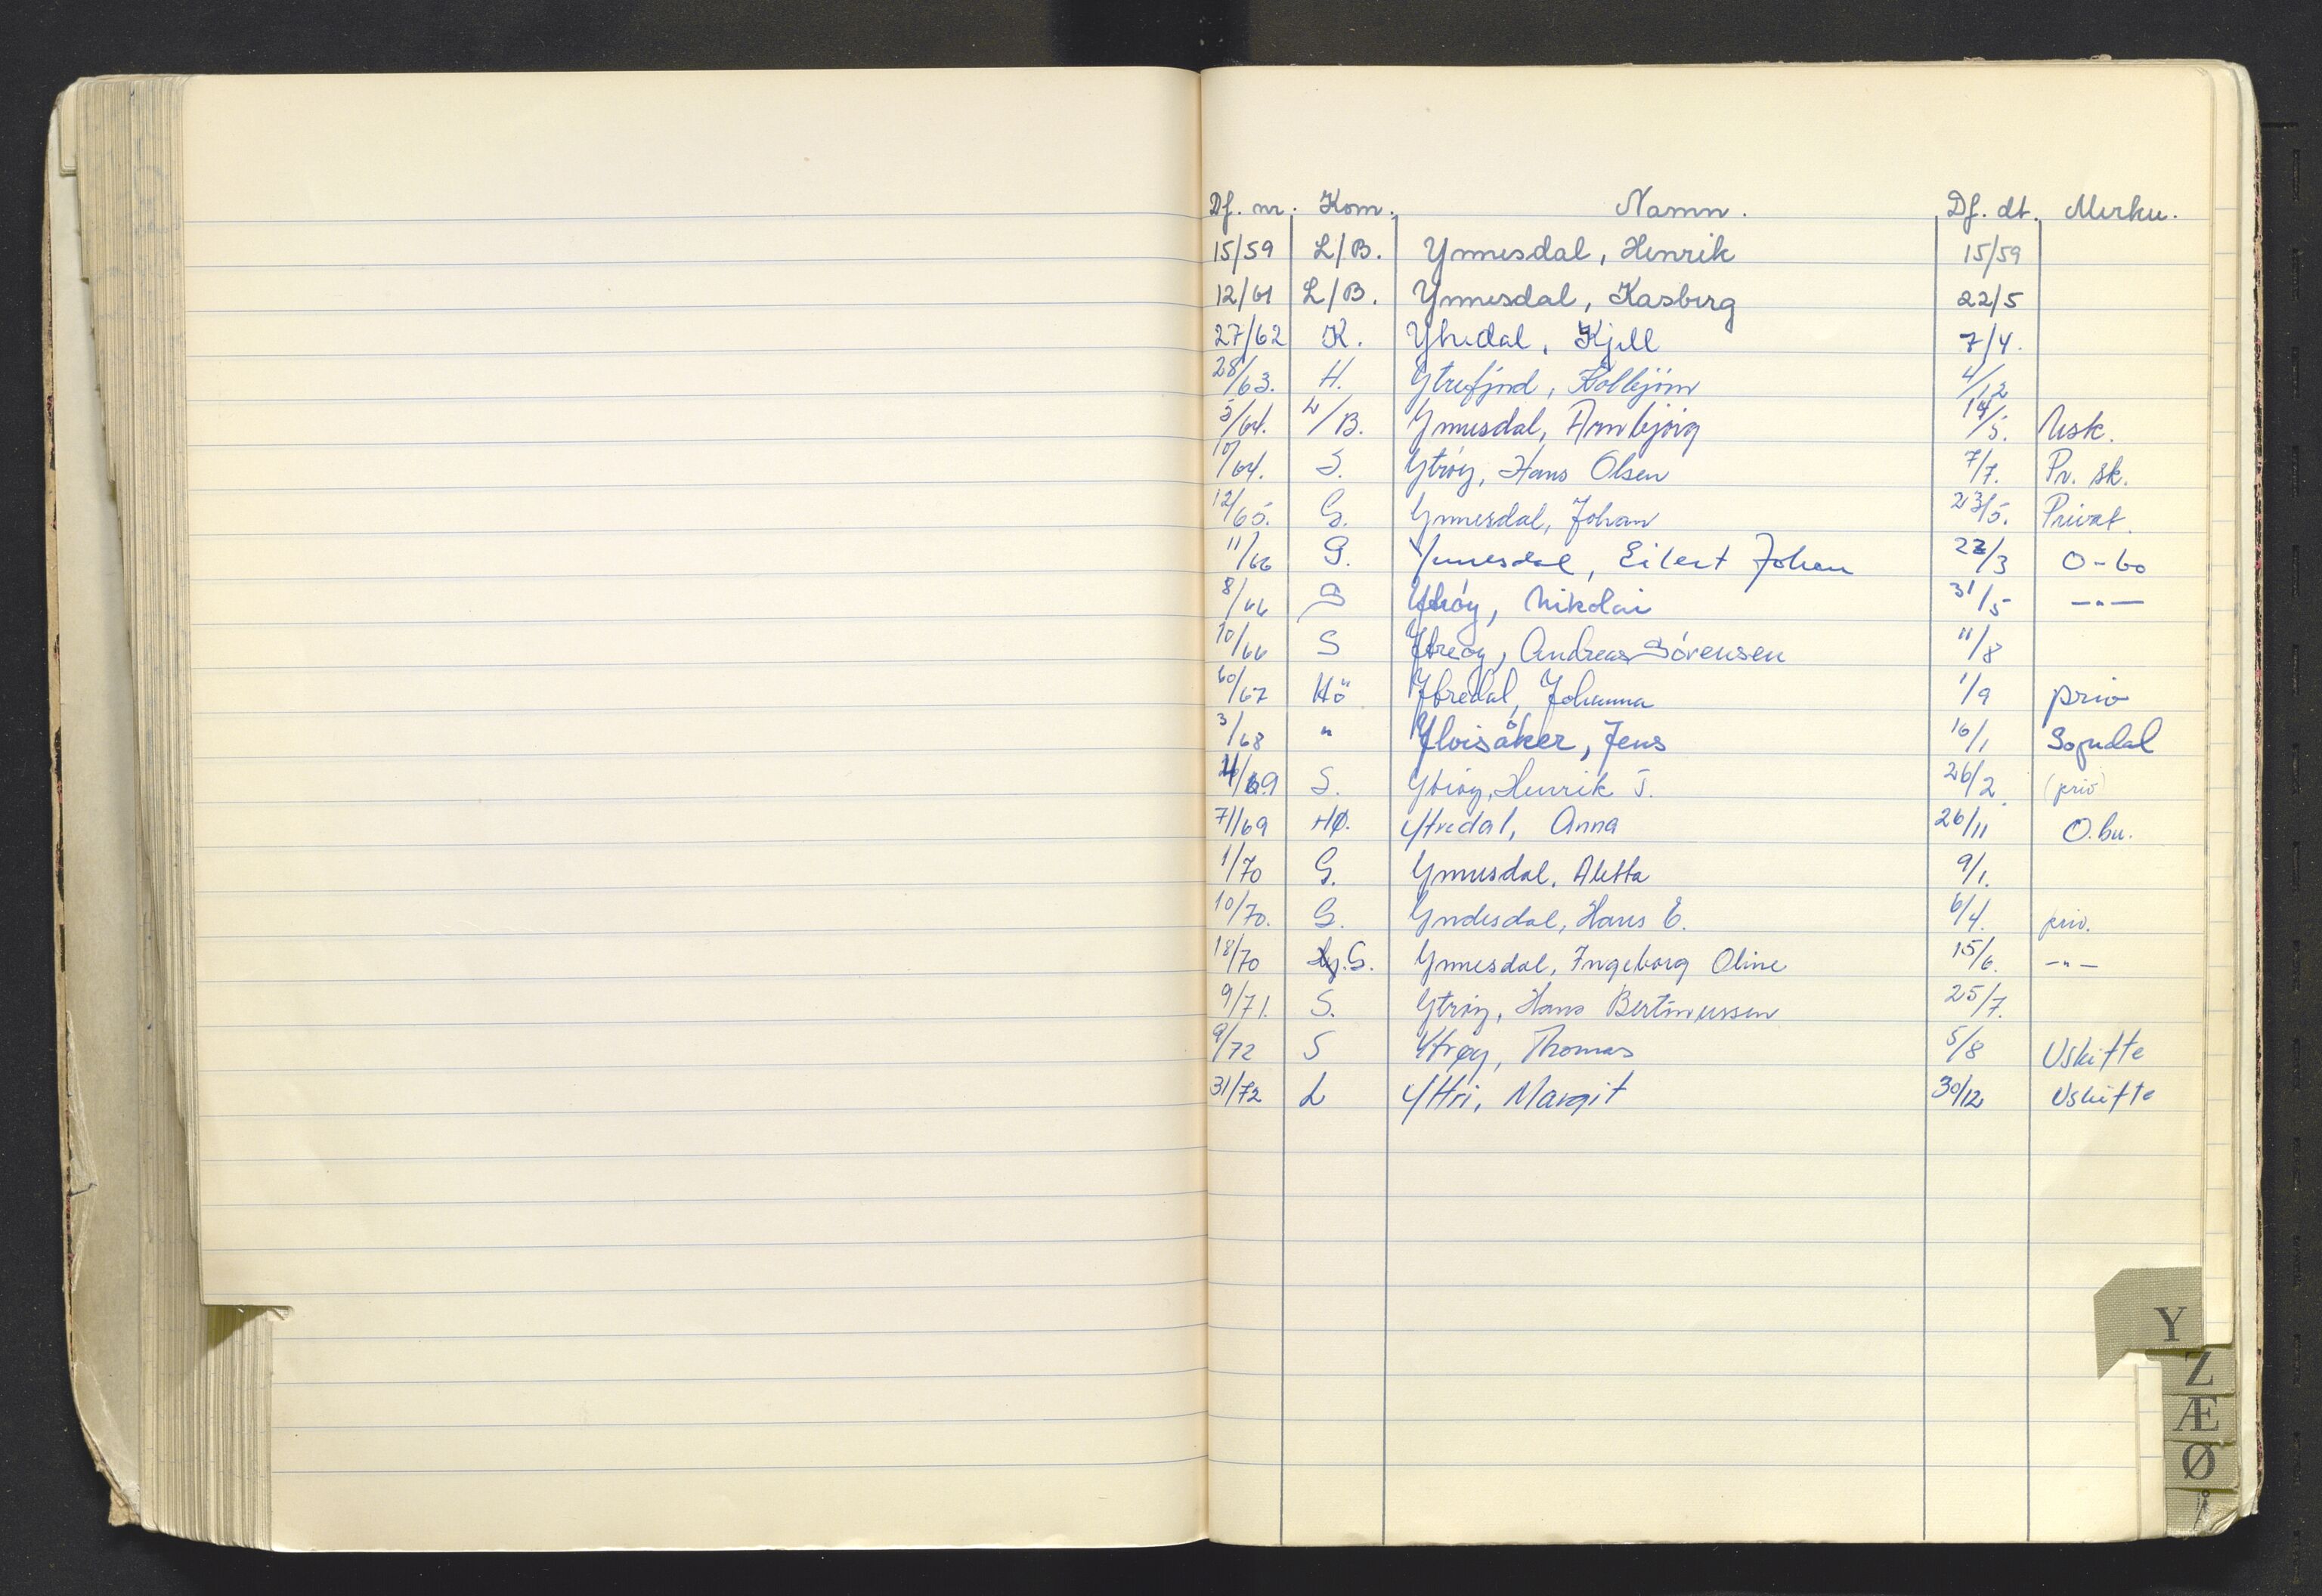 Df. nr. Kom. Namn. Df. dt. Merkn.
15/59 L/B. Ynnesdal, Henrik 15/59
12/61 L/B. Ynnesdal, Kasberg 22/5
27/62 K. Ytredal, Kjell 7/4.
28/63. H. Ytrefjord, Kolbjörn 4/12
5/64. L/B. Ynnesdal, Arnbjörg 14/5. Usk.
10/64. S. Ytröy, Hans Olsen 7/7. Pr. sk.
12/65. G. Ynnesdal, Johan 23/5. Privat.
11/66 G. Ynnesdal, Eilert Johan 22/3 O-bo
8/66 S Ytröy, Nikolai 31/5 —"—
10/66 S Ytreöy, Andreas Sörensen 11/8
60/67 Hö Ytredal, Johanna 1/9 priv
3/68 " Ylvisåker, Jens 16/1 Sogndal
4/69 S. Ytröy, Henrik J. 26/2. (priv)
71/69 HØ. Ytredal, Anna 26/11 O.bu.
1/70 G. Ynnesdal, Aletta 9/1.
10/70. G. Yndesdal, Hans E. 6/4. priv.
18/70 G. Ynnesdal, Ingeborg Oline 15/6. —"—
9/71. S. Ytröy, Hans Bertinussen 25/7.
9/72 S Ytrøy, Thomas 5/8 Uskifte
31/72 L Yttri, Margit 30/12 Uskifte
Y
Z
Æ
Ø
Å